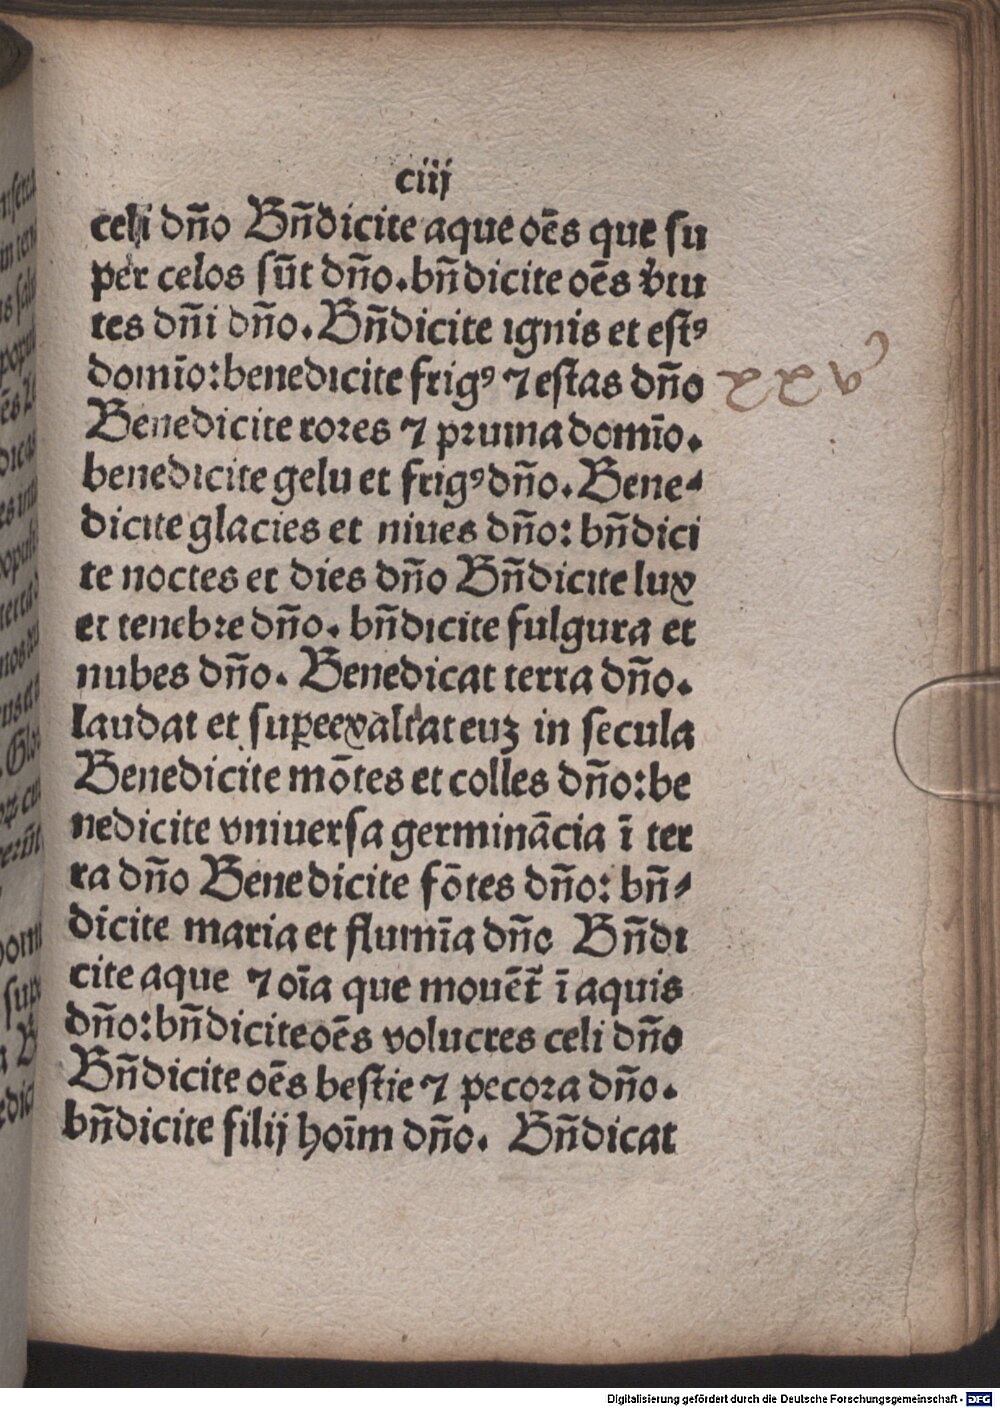 ciij
celi dn̄o Bn̄dicite aque oēs que su
per celos sūt dn̄o. bn̄dicite oēs v̓tu
tes dn̄i dn̄o. Bn̄dicite ignis et estꝰ
domīo: benedicite frigꝰ ⁊ estas dn̄o
xxv
Benedicite rores ⁊ pruina domīo.
benedicite gelu et frigꝰ dn̄o. Bene⸗
dicite glacies et niues dn̄o: bn̄dici
te noctes et dies dn̄o Bn̄dicite lux
et tenebre dn̄o. bn̄dicite fulgura et
nubes dn̄o. Benedicat terra dn̄o.
laudat et suꝑexaltat euꝫ in secula
Benedicite mōtes et colles dn̄o: be
nedicite vniuersa germinācia ī ter
ra dn̄o Benedicite fōtes dn̄o: bn̄⸗
dicite maria et flumīa dn̄o Bn̄di
cite aque ⁊ oīa que mouēt̄ ī aquis
dn̄o: bn̄dicite oēs volucres celi dn̄o
Bn̄dicite oēs bestie ⁊ pecora dn̄o.
bn̄dicite filij hoīm dn̄o. Bn̄dicat
Digitalisierung gefördert durch die Deutsche Forschungsgemeinschaft - DFG